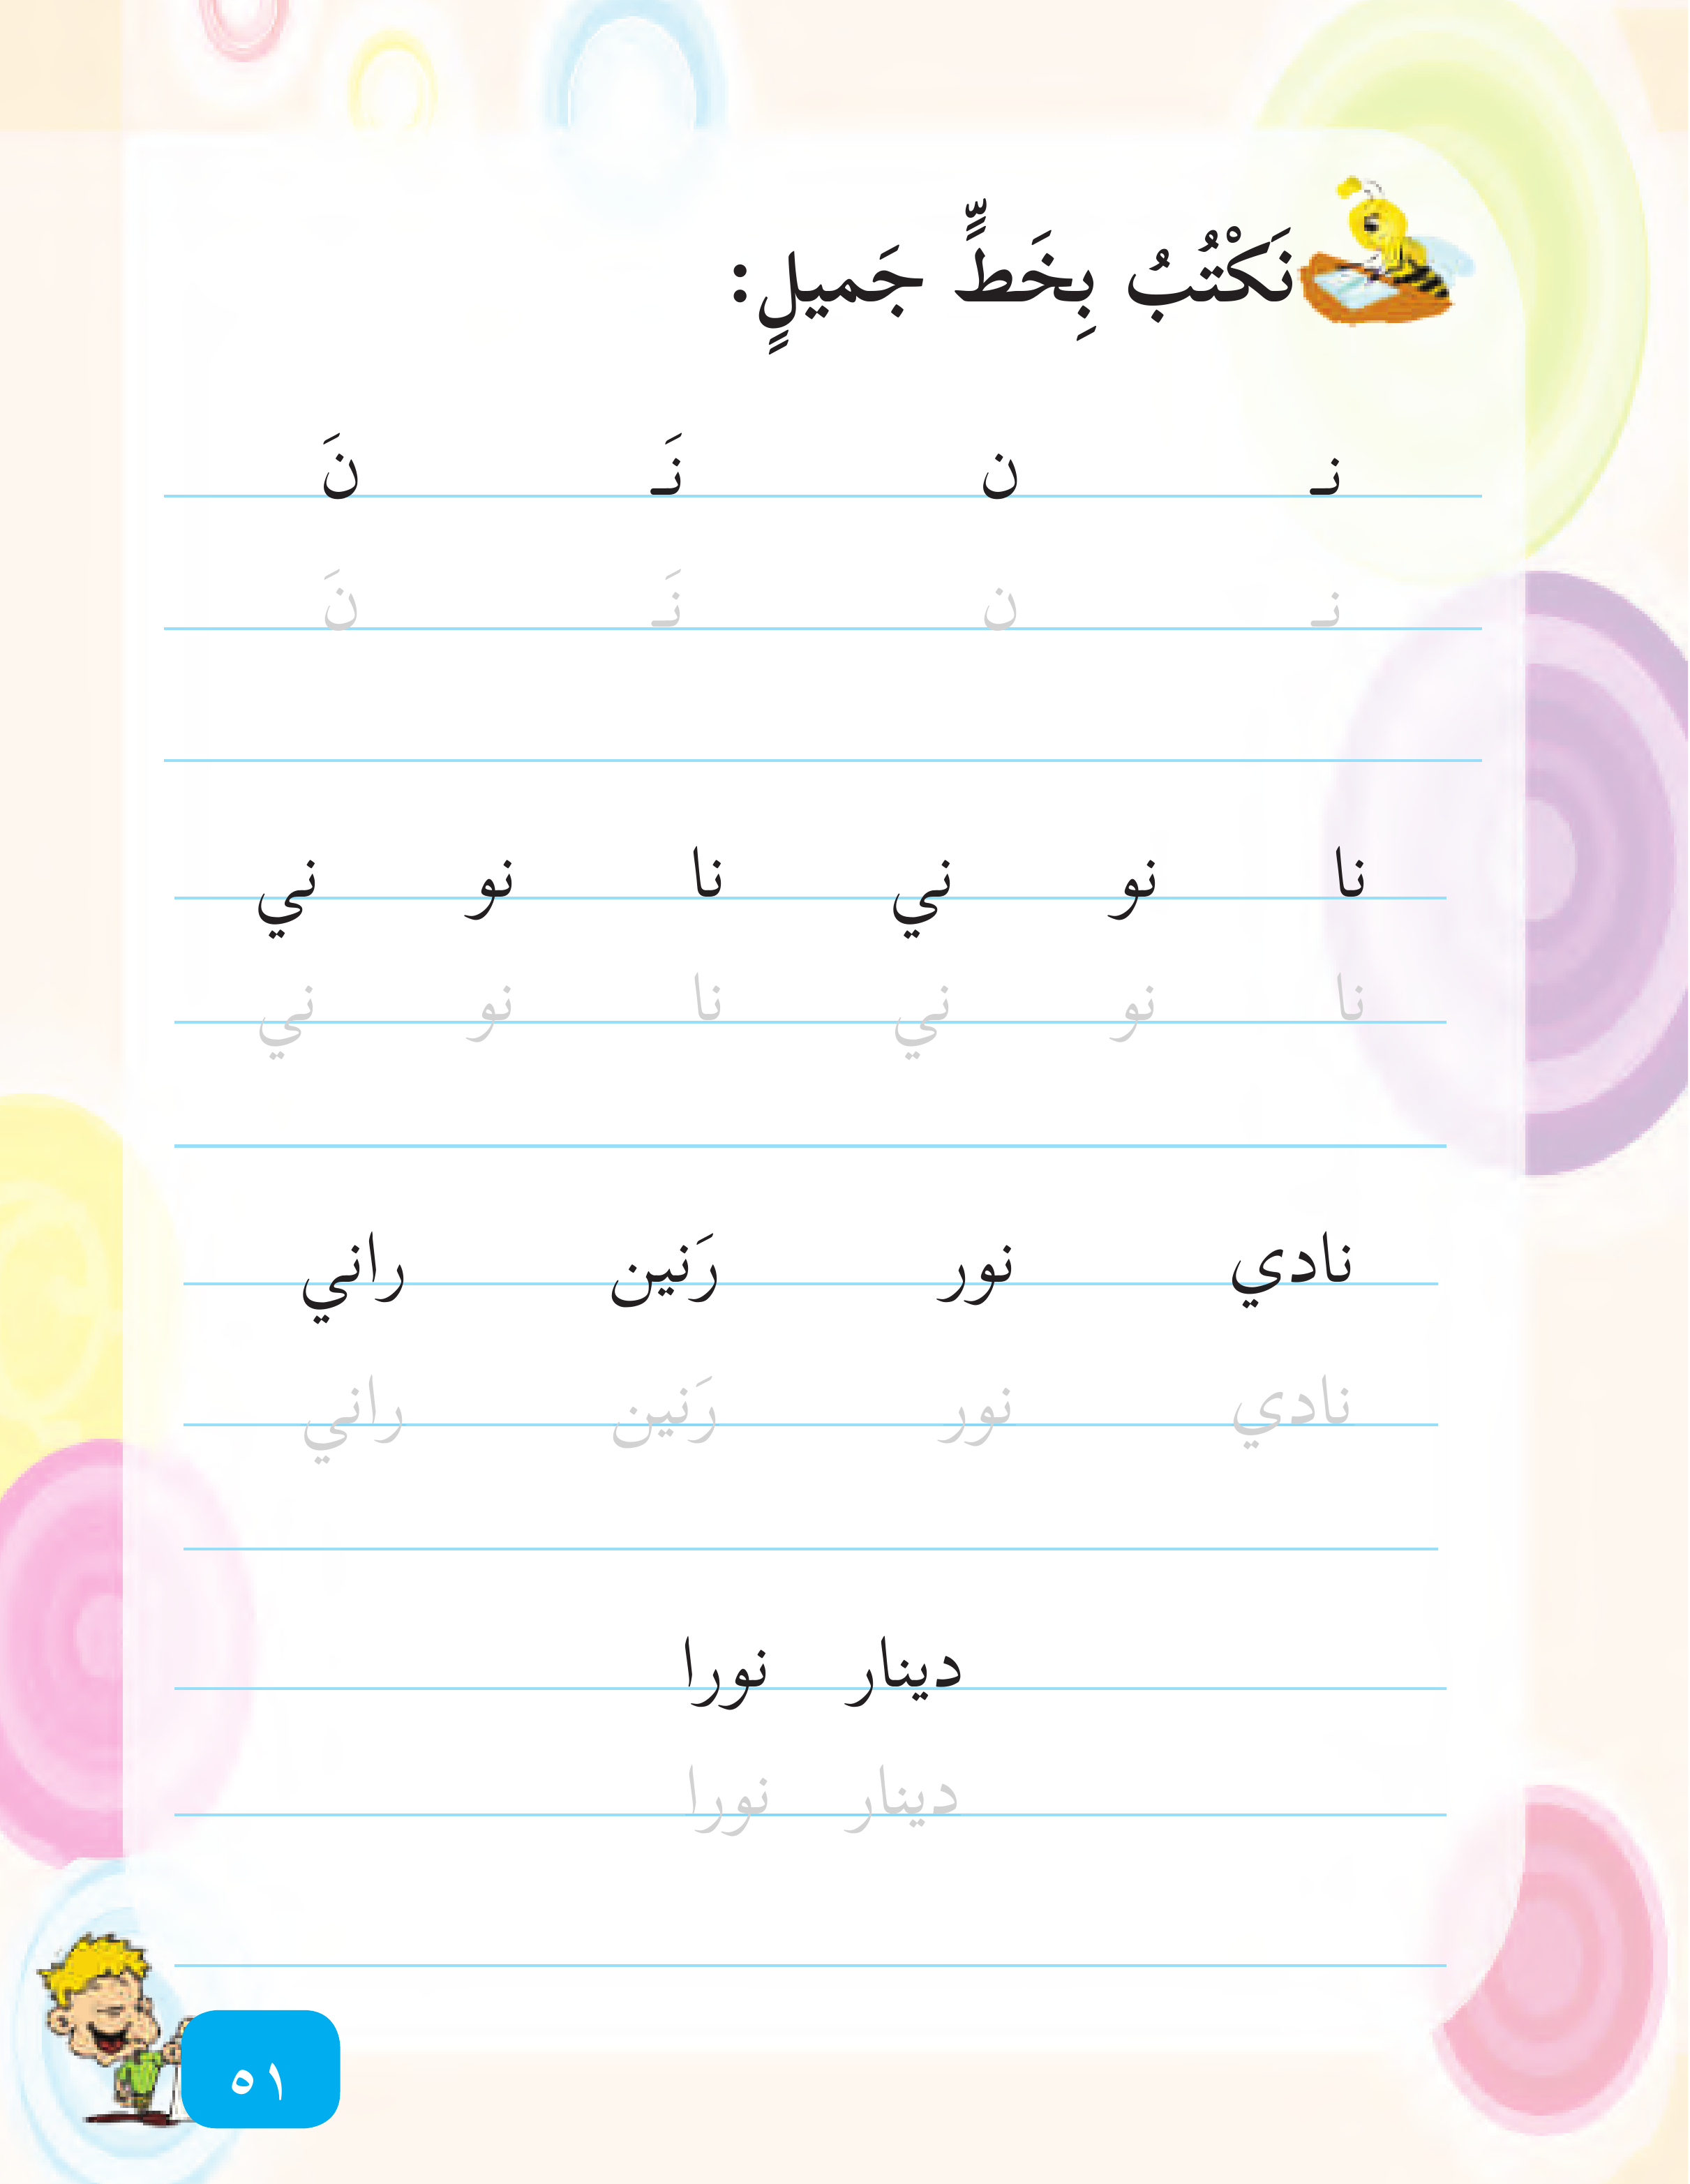 نَكْتُبُ بِخَطٍّ جَميلٍ:
نـ ن نَـ نَ
نـ ن نَـ نَ
نا نو ني نا نو ني
نا نو ني نا نو ني
نادي نور رَنين راني
نادي نور رَنين راني
دينار نورا
دينار نورا
٥١